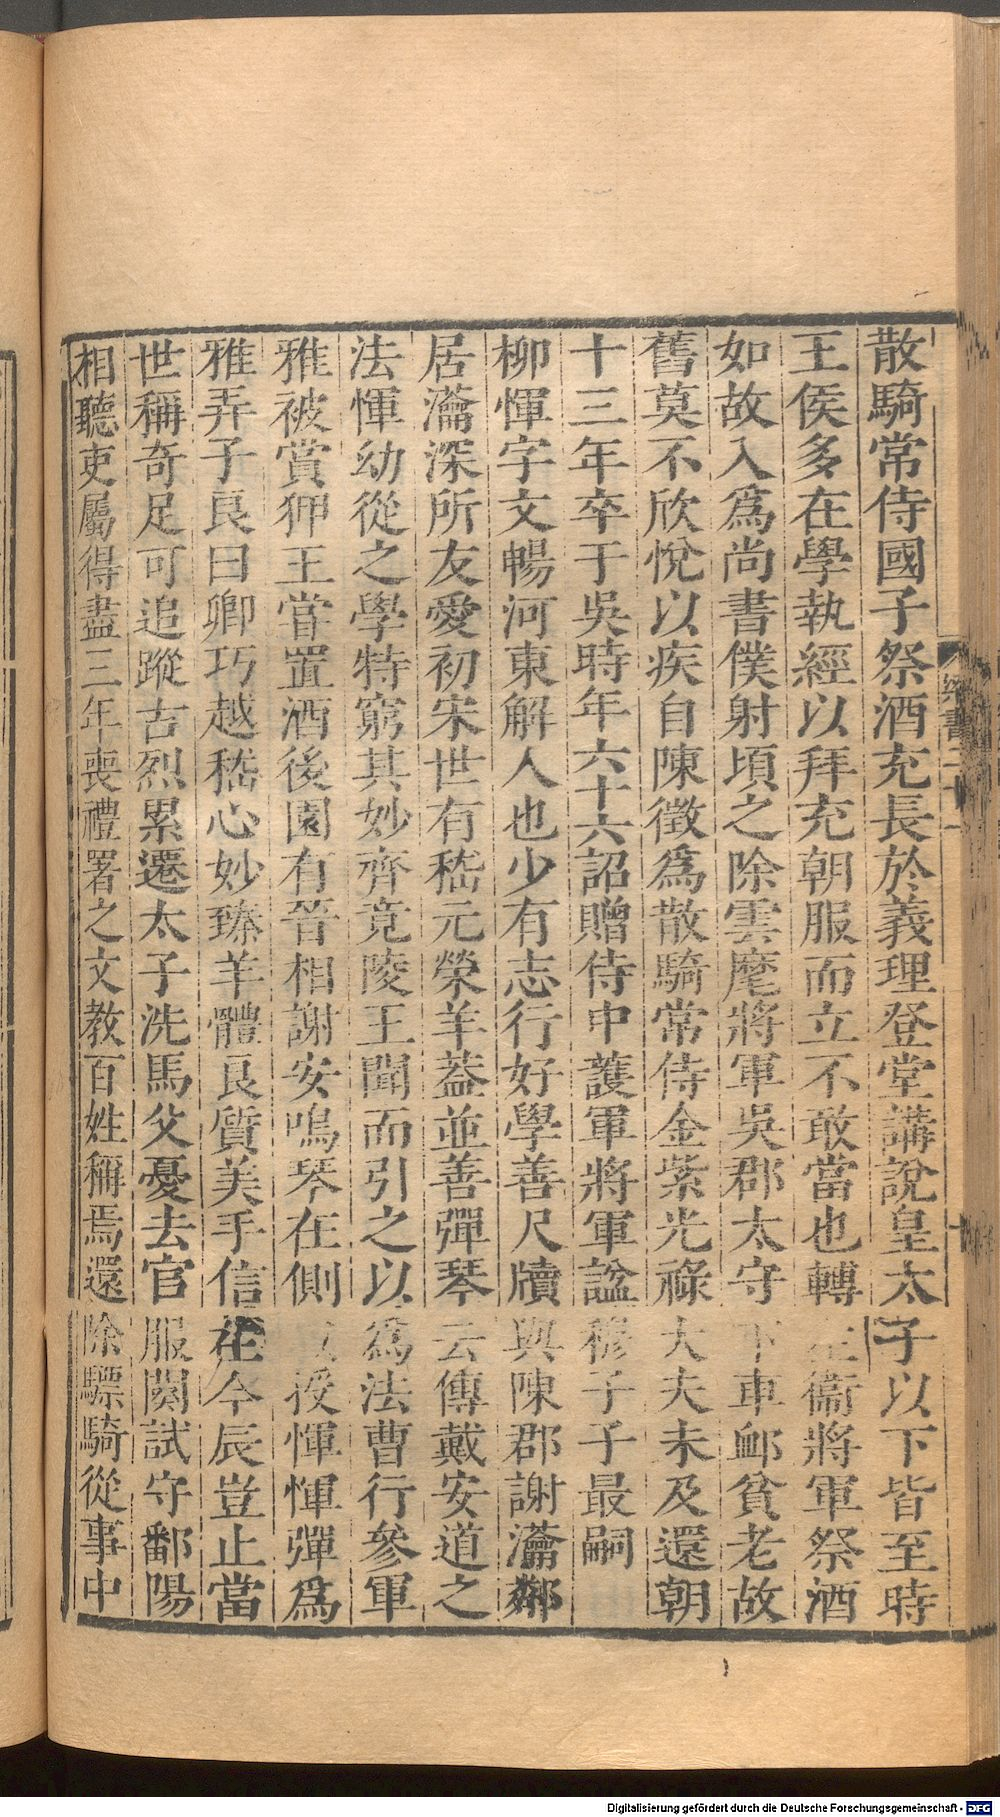 散騎常侍國子祭酒充長於義理登堂講說皇太子以下皆至時
王侯多在學執經以拜充朝服而立不敢當也轉左衞將軍祭酒
如故入為尚書僕射頃之除雲麾將軍吳郡太守下車卹貧老故
舊莫不欣悅以疾自陳徵為散騎常侍金紫光祿大夫未及還朝
十三年卒于吳時年六十六詔贈侍中護軍將軍諡穆子子最嗣
柳惲字文暢河東解人也少有志行好學善尺牘與陳郡謝瀹鄰
居瀹深所友愛初宋世有嵇元榮羊蓋並善彈琴云傳戴安道之
法惲幼從之學特窮其妙齊竟陵王聞而引之以為法曹行參軍
雅被賞狎王嘗置酒後園有晉相謝安鳴琴在側授惲惲彈為
雅弄子良曰卿巧越嵇心妙臻羊體良質美手信在今辰豈止當
世稱奇足可追蹤古烈累遷太子洗馬父憂去官服闋試守鄱陽
相聽吏屬得盡三年喪禮署之文教百姓稱焉還除驃騎從事中
梁書二十一
十
Digitalisierung gefördert durch die Deutsche Forschungsgemeinschaft - DFG